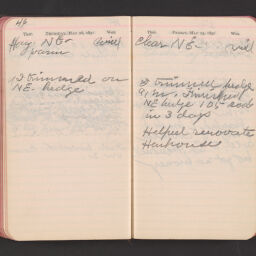 46
Ther. THURSDAY, MAY 28, 1891 Wea.
Hazy NE-
warm
1 I trimmed on
NE- hedge
Ther. FRIDAY, MAY 29, 1891 Wea.
Clear NE-
I trimmed hedge
finished
NE hedge 105 rods
in 3 days
Helped renovate
Henhouse